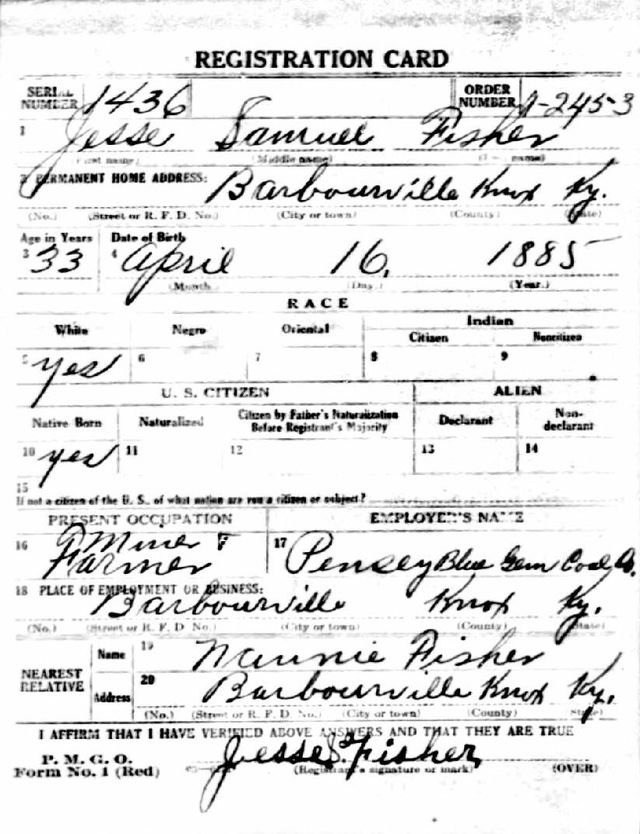 REGISTRATION CARD
SERIAL NUMBER 1436 ORDER NUMBER A-2453
1 Jesse Samuel Fisher
(First name) (Middle name) (Last name)
2 PERMANENT HOME ADDRESS: Barbourville Knox Ky.
(No.) (Street or R. F. D. No.) (City or town) (County) (State)
Age in Years Date of Birth
3 33 4 April 16, 1885
(Month) (Day) (Year.)
RACE
White Negro Oriental Indian
Citizen Noncitizen
5 yes 6 7 8 9
U. S. CITIZEN ALIEN
Native Born Naturalized Citizen by Father's Naturalization Before Registrant's Majority Declarant Non-declarant
10 yes 11 12 13 14
15
If not a citizen of the U. S., of what nation are you a citizen or subject?
PRESENT OCCUPATION EMPLOYER'S NAME
16 Miner Farmer 17 Pensey Blue Gem Coal Co.
18 PLACE OF EMPLOYMENT OR BUSINESS:
Barbourville Knox Ky.
(No.) (Street or R. F. D. No.) (City or town) (County) (State)
NEAREST RELATIVE Name 19 Nannie Fisher
Address 20 Barbourville Knox Ky.
(No.) (Street or R. F. D. No.) (City or town) (County) State)
I AFFIRM THAT I HAVE VERIFIED ABOVE ANSWERS AND THAT THEY ARE TRUE
P. M. G. O.
Form No. 1 (Red) Jesse S. Fisher
(Registrant's signature or mark) (OVER)